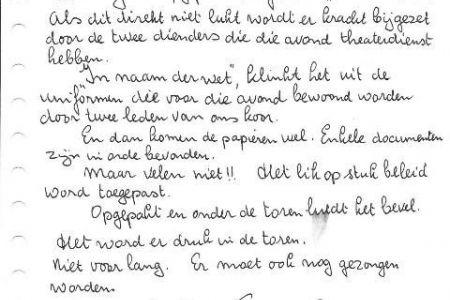 Als dit direkt niet lukt wordt er kracht bijgezet
door de twee dienders die die avond theaterdienst
hebben.
"In naam der wet", klinkt het uit de
uniformen die voor die avond bewoond worden
door twee leden van ons koor.
En dan komen de papieren wel. Enkele documenten
zijn in orde bevonden.
Maar velen niet!! Het lik op stuk beleid
word toegepast.
Opgepakt en onder de toren luidt het bevel.
Het word er druk in de toren.
Niet voor lang. Er moet ook nog gezongen
worden.